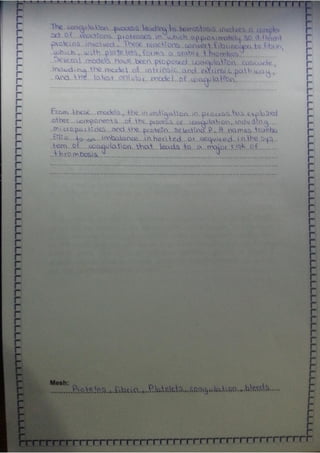 The coagulation process leading to hemostasis involves a complex
set of reactions proteases in which approximately 30 different
proteins involved. These reactions convert fibrinogen to fibrin,
which, with platelets, forms a stable thrombus.
Several models have been proposed coagulation cascade,
including the model of intrinsic and extrinsic pathway,
and the latest cellular model of coagulation
From these models, the investigation in process has explained
other components of the process of coagulation, including
microparticles and the protein selectina P. A names thrombo
to an imbalance inherited or acquired in the sys
tem of coagulation that leads to a major risk of
thrombosis
Mesh:
Proteins, fibrin, Platelets, coagulation, bleeds